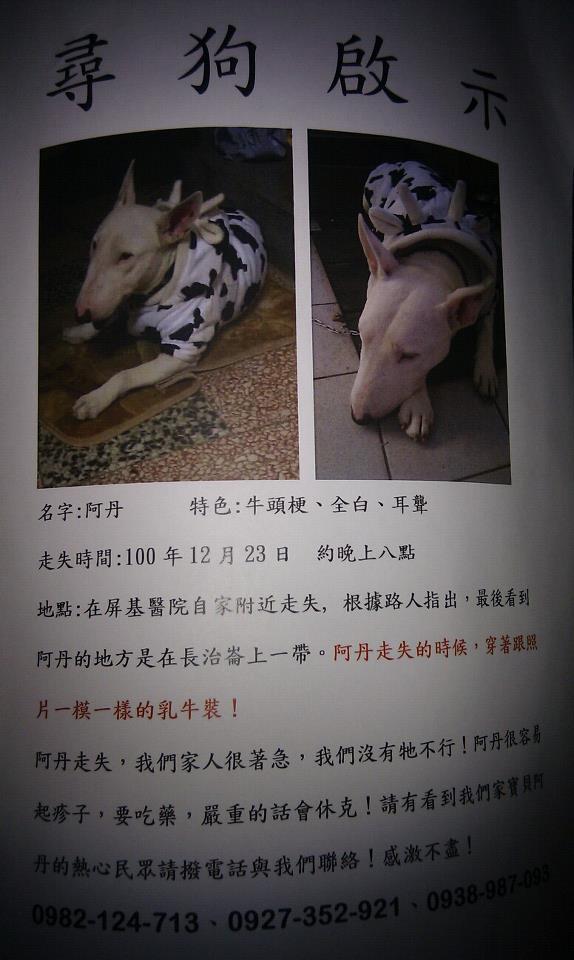 尋狗啟示
名字:阿丹 特色:牛頭梗、全白、耳聾
走失時間:100 年 12 月 23 日 約晚上八點
地點:在屏基醫院自家附近走失, 根據路人指出，最後看到
阿丹的地方是在長治崙上一帶。阿丹走失的時候，穿著跟照
片一模一樣的乳牛裝！
阿丹走失，我們家人很著急，我們沒有牠不行！阿丹很容易
起疹子，要吃藥，嚴重的話會休克！請有看到我們家寶貝阿
丹的熱心民眾請撥電話與我們聯絡！感激不盡！
0982-124-713、0927-352-921、0938-987-093